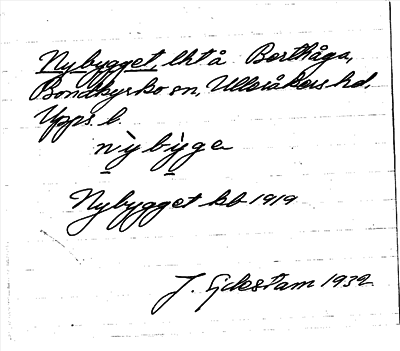 Nybygget, lht å Berthåga,
Bondkyrko sn, Ulleråkers hd,
Upps. l.
nỳbỳge
Nybygget kb 1919
J. Eckstam 1932